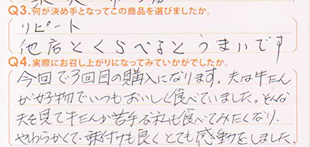 Q3.何が決め手となってこの商品を選びましたか。
リピート
他店とくらべるとうまいです
Q4.実際にお召し上がりになってみていかがでしたか。
今回で3回目の購入になります。夫は牛たん
が好物でいつもおいしく食べていました。そんな
夫を見て牛たんが苦手な私も食べてみたくなり、
やわらかくて、味付けも良くとても感動をしました。